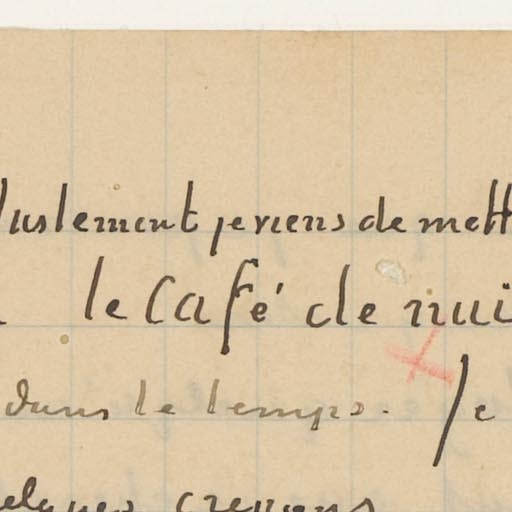 justement je viens de mett
le Café de nui
dans le temps. Je
crevons